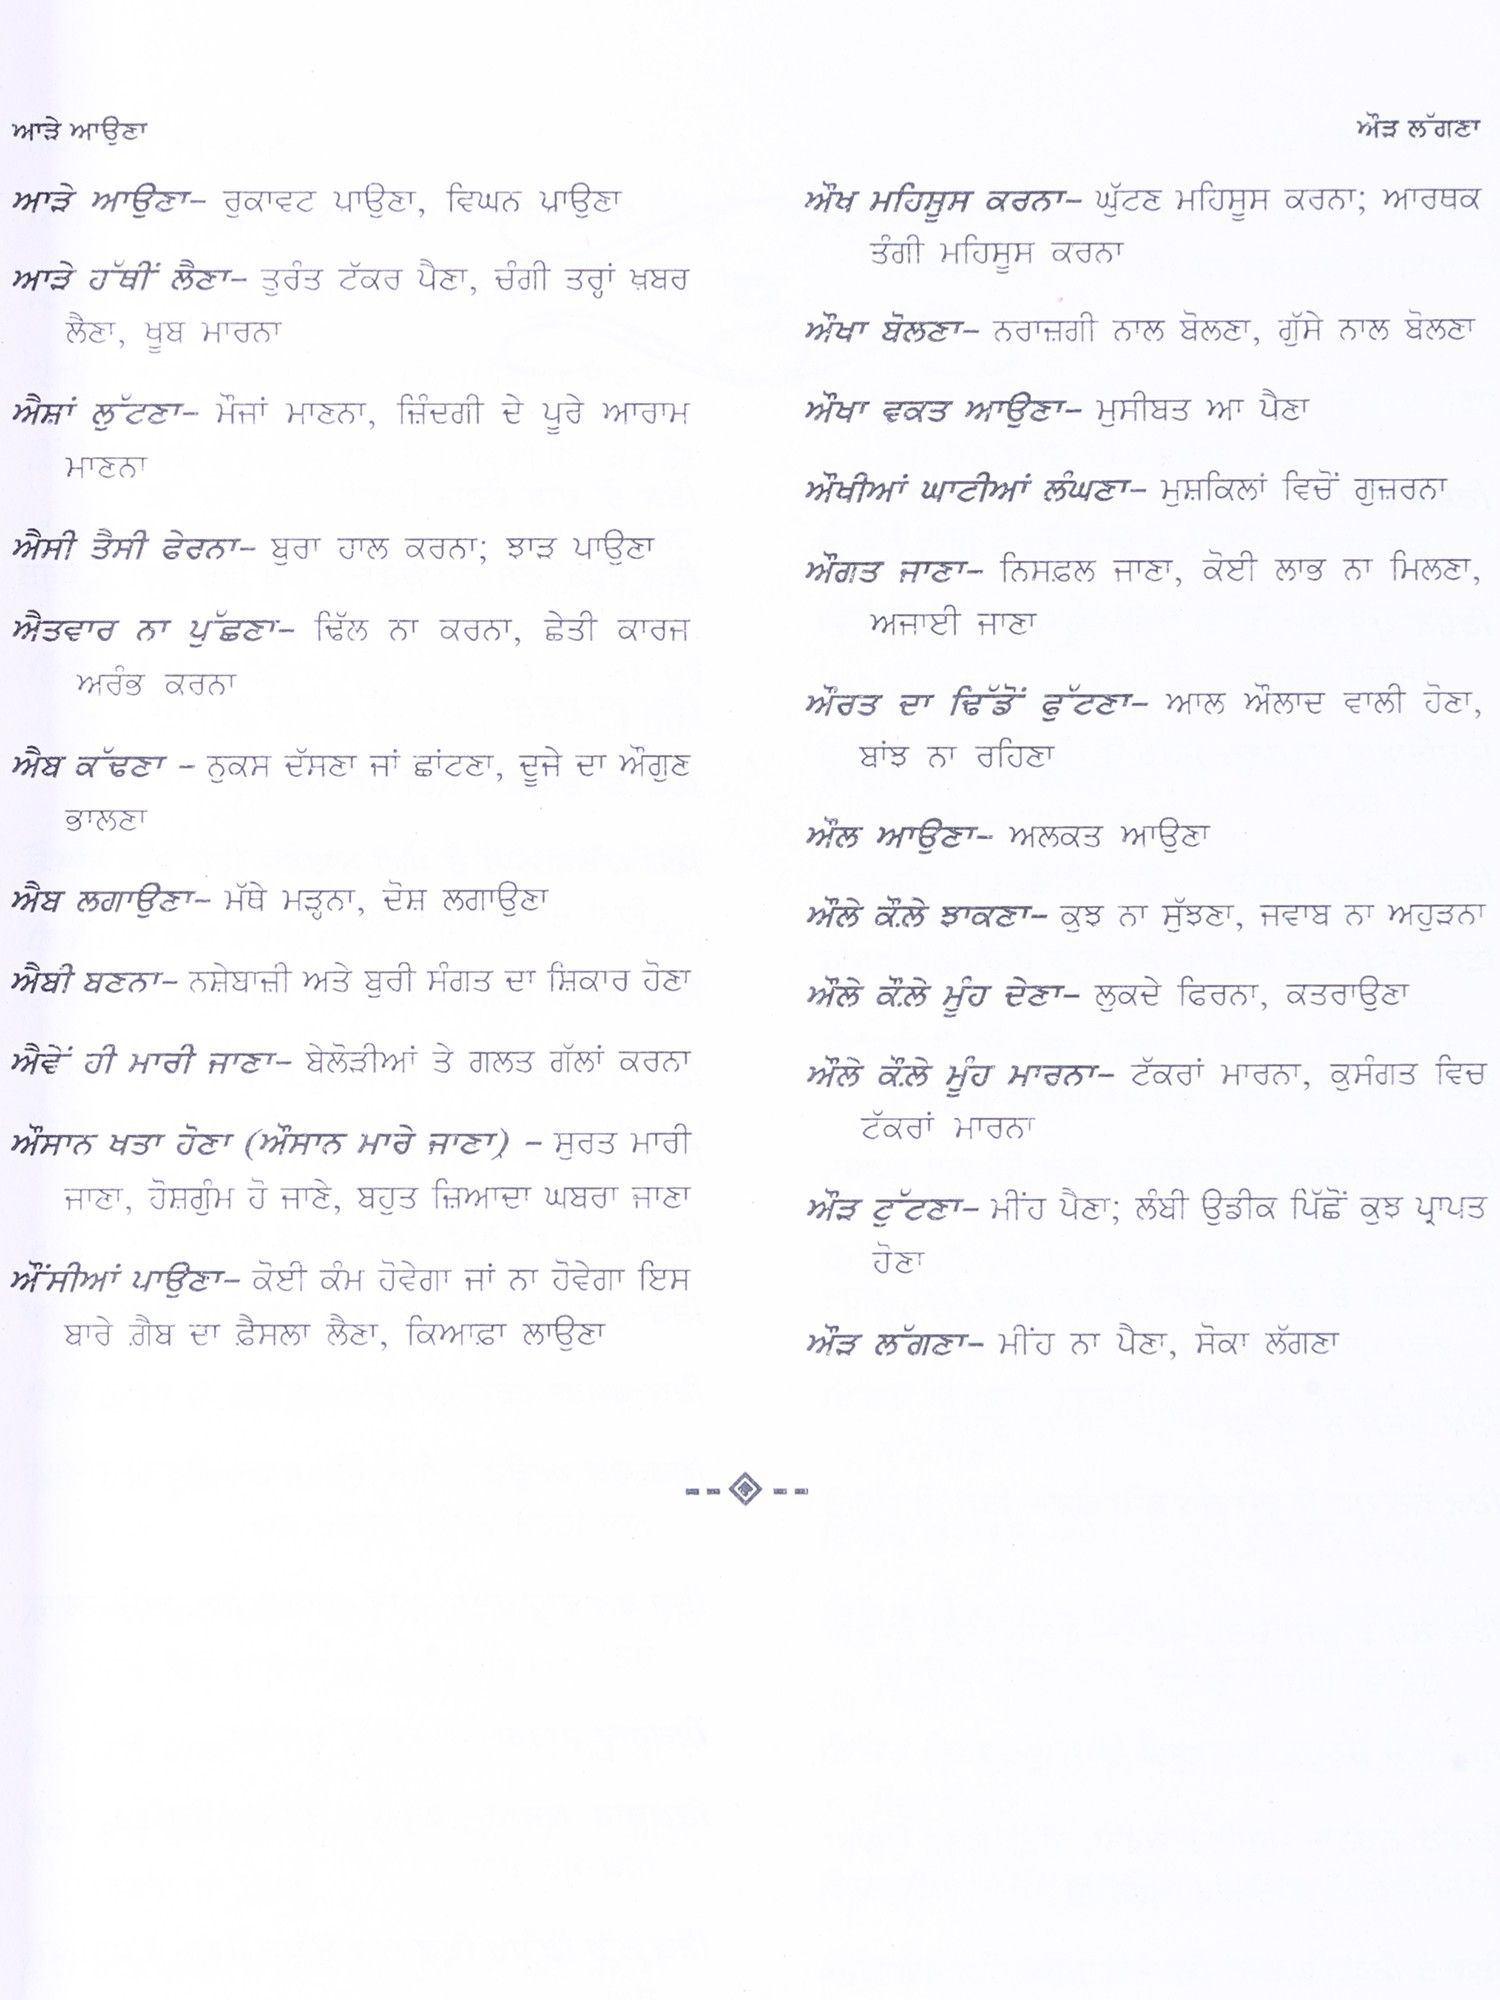 ਆੜੇ ਆਉਣਾ
ਔੜ ਲੱਗਣਾ
ਆੜੇ ਆਉਣਾ– ਰੁਕਾਵਟ ਪਾਉਣਾ, ਵਿਘਨ ਪਾਉਣਾ
ਆੜੇ ਹੱਥੀਂ ਲੈਣਾ– ਤੁਰੰਤ ਟੱਕਰ ਪੈਣਾ, ਚੰਗੀ ਤਰ੍ਹਾਂ ਖ਼ਬਰ
ਲੈਣਾ, ਖ਼ੂਬ ਮਾਰਨਾ
ਐਸ਼ਾਂ ਲੁੱਟਣਾ– ਮੌਜਾਂ ਮਾਣਨਾ, ਜ਼ਿੰਦਗੀ ਦੇ ਪੂਰੇ ਆਰਾਮ
ਮਾਣਨਾ
ਐਸੀ ਤੈਸੀ ਫੇਰਨਾ– ਬੁਰਾ ਹਾਲ ਕਰਨਾ; ਝਾੜ ਪਾਉਣਾ
ਐਤਵਾਰ ਨਾ ਪੁੱਛਣਾ– ਢਿੱਲ ਨਾ ਕਰਨਾ, ਛੇਤੀ ਕਾਰਜ
ਅਰੰਭ ਕਰਨਾ
ਐਬ ਕੱਢਣਾ – ਨੁਕਸ ਦੱਸਣਾ ਜਾਂ ਛਾਂਟਣਾ, ਦੂਜੇ ਦਾ ਔਗੁਣ
ਭਾਲਣਾ
ਐਬ ਲਗਾਉਣਾ– ਮੱਥੇ ਮੜ੍ਹਨਾ, ਦੋਸ਼ ਲਗਾਉਣਾ
ਐਬੀ ਬਣਨਾ– ਨਸ਼ੇਬਾਜ਼ੀ ਅਤੇ ਬੁਰੀ ਸੰਗਤ ਦਾ ਸ਼ਿਕਾਰ ਹੋਣਾ
ਐਵੇਂ ਹੀ ਮਾਰੀ ਜਾਣਾ– ਬੇਲੋੜੀਆਂ ਤੇ ਗਲਤ ਗੱਲਾਂ ਕਰਨਾ
ਔਸਾਨ ਖਤਾ ਹੋਣਾ (ਔਸਾਨ ਮਾਰੇ ਜਾਣਾ) – ਸੁਰਤ ਮਾਰੀ
ਜਾਣਾ, ਹੋਸ਼ਗੁੰਮ ਹੋ ਜਾਣੇ, ਬਹੁਤ ਜ਼ਿਆਦਾ ਘਬਰਾ ਜਾਣਾ
ਔਂਸੀਆਂ ਪਾਉਣਾ– ਕੋਈ ਕੰਮ ਹੋਵੇਗਾ ਜਾਂ ਨਾ ਹੋਵੇਗਾ ਇਸ
ਬਾਰੇ ਗ਼ੈਬ ਦਾ ਫ਼ੈਸਲਾ ਲੈਣਾ, ਕਿਆਫ਼ਾ ਲਾਉਣਾ
ਔਖ ਮਹਿਸੂਸ ਕਰਨਾ– ਘੁੱਟਣ ਮਹਿਸੂਸ ਕਰਨਾ; ਆਰਥਕ
ਤੰਗੀ ਮਹਿਸੂਸ ਕਰਨਾ
ਔਖਾ ਬੋਲਣਾ– ਨਰਾਜ਼ਗੀ ਨਾਲ ਬੋਲਣਾ, ਗੁੱਸੇ ਨਾਲ ਬੋਲਣਾ
ਔਖਾ ਵਕਤ ਆਉਣਾ– ਮੁਸੀਬਤ ਆ ਪੈਣਾ
ਔਖੀਆਂ ਘਾਟੀਆਂ ਲੰਘਣਾ– ਮੁਸ਼ਕਿਲਾਂ ਵਿਚੋਂ ਗੁਜ਼ਰਨਾ
ਔਗਤ ਜਾਣਾ– ਨਿਸਫ਼ਲ ਜਾਣਾ, ਕੋਈ ਲਾਭ ਨਾ ਮਿਲਣਾ,
ਅਜਾਈ ਜਾਣਾ
ਔਰਤ ਦਾ ਢਿੱਡੋਂ ਫੁੱਟਣਾ– ਆਲ ਔਲਾਦ ਵਾਲੀ ਹੋਣਾ,
ਬਾਂਝ ਨਾ ਰਹਿਣਾ
ਔਲ ਆਉਣਾ– ਅਲਕਤ ਆਉਣਾ
ਔਲੇ ਕੌਲੇ ਝਾਕਣਾ– ਕੁਝ ਨਾ ਸੁੱਝਣਾ, ਜਵਾਬ ਨਾ ਅਹੁੜਨਾ
ਔਲੇ ਕੌਲੇ ਮੂੰਹ ਦੇਣਾ– ਲੁਕਦੇ ਫਿਰਨਾ, ਕਤਰਾਉਣਾ
ਔਲੇ ਕੌਲੇ ਮੂੰਹ ਮਾਰਨਾ– ਟੱਕਰਾਂ ਮਾਰਨਾ, ਕੁਸੰਗਤ ਵਿਚ
ਟੱਕਰਾਂ ਮਾਰਨਾ
ਔੜ ਟੁੱਟਣਾ– ਮੀਂਹ ਪੈਣਾ; ਲੰਬੀ ਉਡੀਕ ਪਿੱਛੋਂ ਕੁਝ ਪ੍ਰਾਪਤ
ਹੋਣਾ
ਔੜ ਲੱਗਣਾ– ਮੀਂਹ ਨਾ ਪੈਣਾ, ਸੋਕਾ ਲੱਗਣਾ